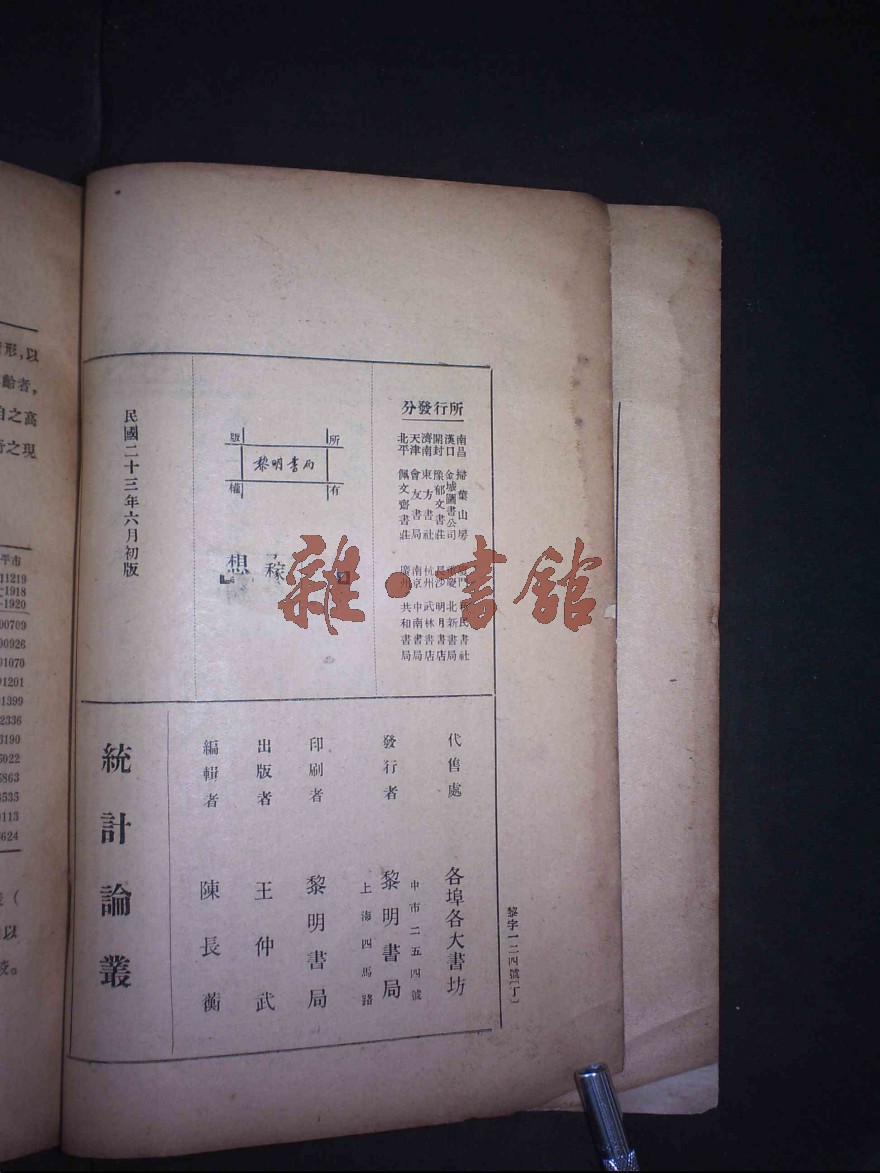 形,以
齡者,
自之高
之現
平市
11219
-1918
-1920
00709
00926
01070
01201
01399
2336
3190
5022
5863
3535
0113
3624
以
民國二十三年六月初版
版 所
黎明書局
權 有
想 稼
分發行所
南昌 掃葉山房
漢口 金城圖書公司
開封 豫郁文書莊
濟南 東方書社
天津 會友書局
北平 佩文齋書莊
民書社
北新書局
明月書店
杭州 武林書店
南京 中南書局
廣州 共和書局
統計論叢
編輯者 陳長蘅
出版者 王仲武
印刷者 黎明書局
上海四馬路
發行者 黎明書局
中市二五四號
代售處 各埠各大書坊
黎字一二四號〔丁〕
雜·書館